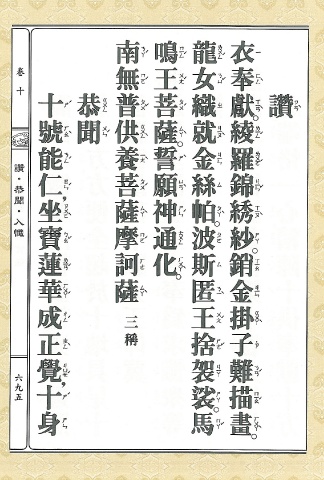 讚
衣奉獻。綾羅錦綉紗。銷金掛子難描畫。
龍女織就金絲帕。波斯匿王捨袈裟。馬
鳴王菩薩。誓願神通化。
南無普供養菩薩摩訶薩 三稱
恭聞
十號能仁，坐寶蓮華成正覺，十身
卷十
讚・恭聞・入懺
六九五